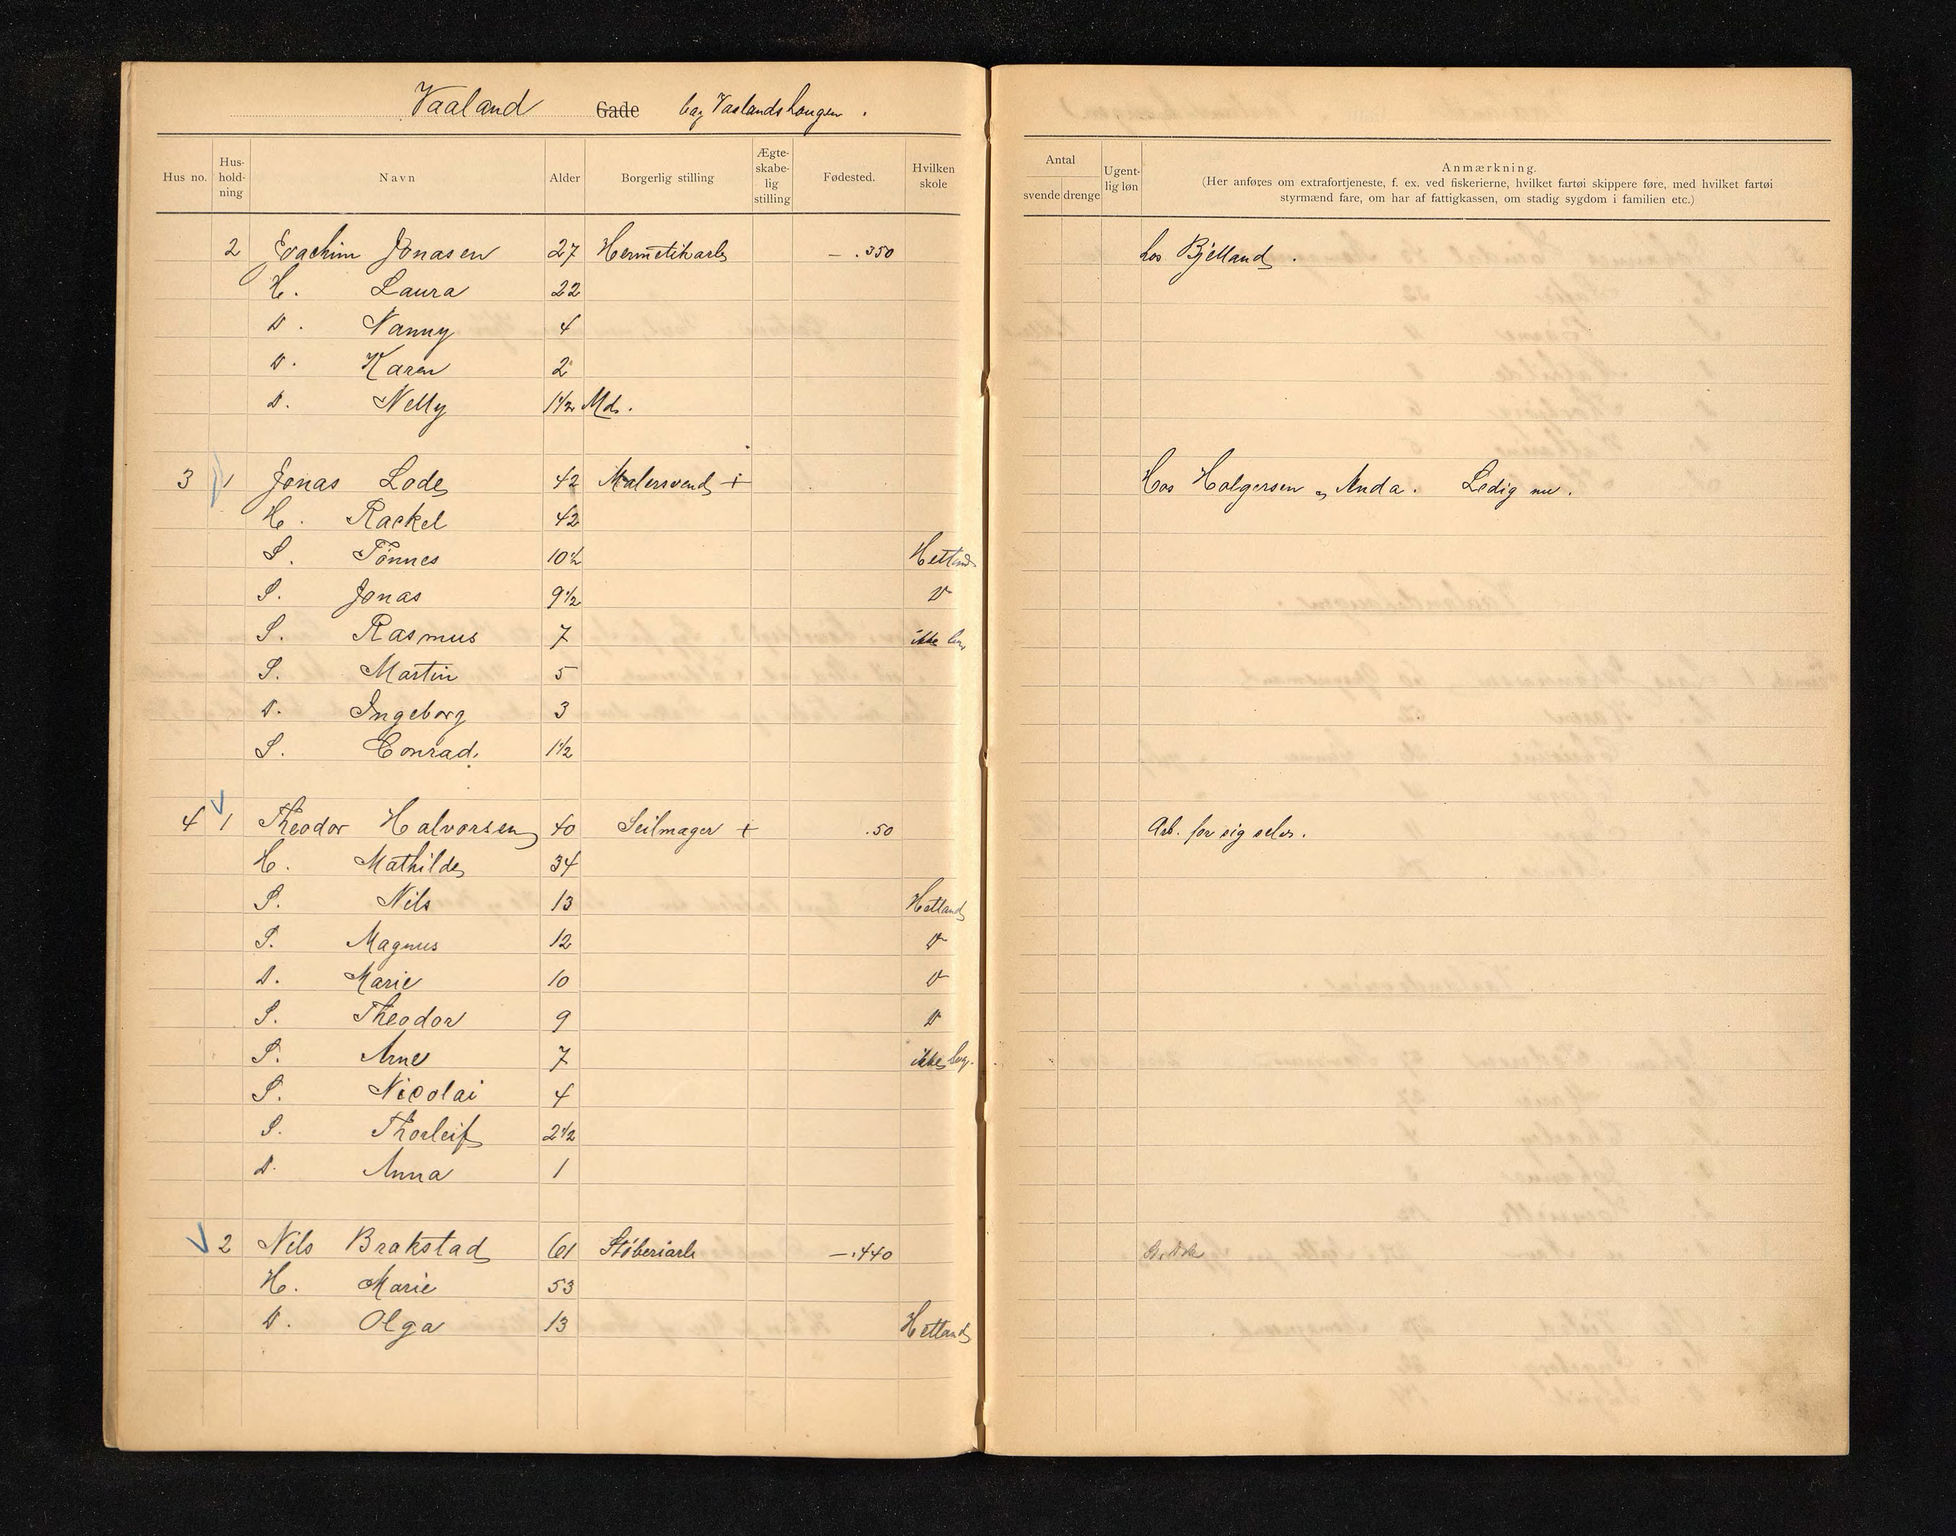 Vaaland Gade bag Vaalandshaugen.
Hus no. Hus-hold-ning Navn Alder Borgerlig stilling Ægte-skabe-lig stilling Fødested. Hvilken skole
Antal svende drenge Ugent-lig løn Anmærkning.
(Her anføres om extrafortjeneste, f. ex. ved fiskerierne, hvilket fartøi skippere føre, med hvilket fartøi
styrmænd fare, om har af fattigkassen, om stadig sygdom i familien etc.)
2 Joachim Jonasen 27 Hermetikarb — .350 hos Bjelland.
H. Laura 22
D. Nanny 4
D. Karen 2
D. Nelly 1 1/2 Md.
3 1 Jonas Lode 42 Malersvend + Hos Holgersen og Anda. Ledig nu.
H. Rackel 42
S. Tønnes 10 1/2 Hetland
S. Jonas 9 1/2 D
S. Rasmus 7 ikke beg
S. Martin 5
D. Ingeborg 3
S. Conrad 1 1/2
4 1 Theodor Halvorsen 40 Seilmager + .50 Arb. for sig selv.
H. Mathilde 34
S. Nils 13 Hetland
S. Magnus 12 D
D. Marie 10 D
S. Theodor 9 D
S. Arne 7 ikke beg.
S. Nicolai 4
S. Thorleif 2 1/2
D. Anna 1
2 Nils Brakstad 61 Støberiarb — .440
H. Marie 53
D. Olga 13 Hetland